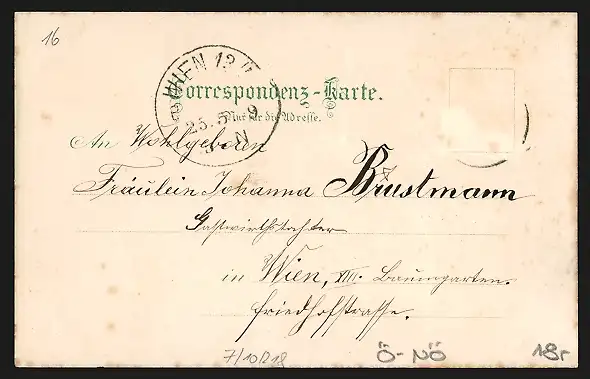 16
WIEN 13
25. 5. 9
N
Correspondenz-Karte.
Nur für die Adresse.
An Wohlgeboren
Fräulein Johanna Brustmann
Gastwirthstochter
in Wien, XIII. Baumgarten.
Friedhofstrasse.
Ö-NÖ
18r